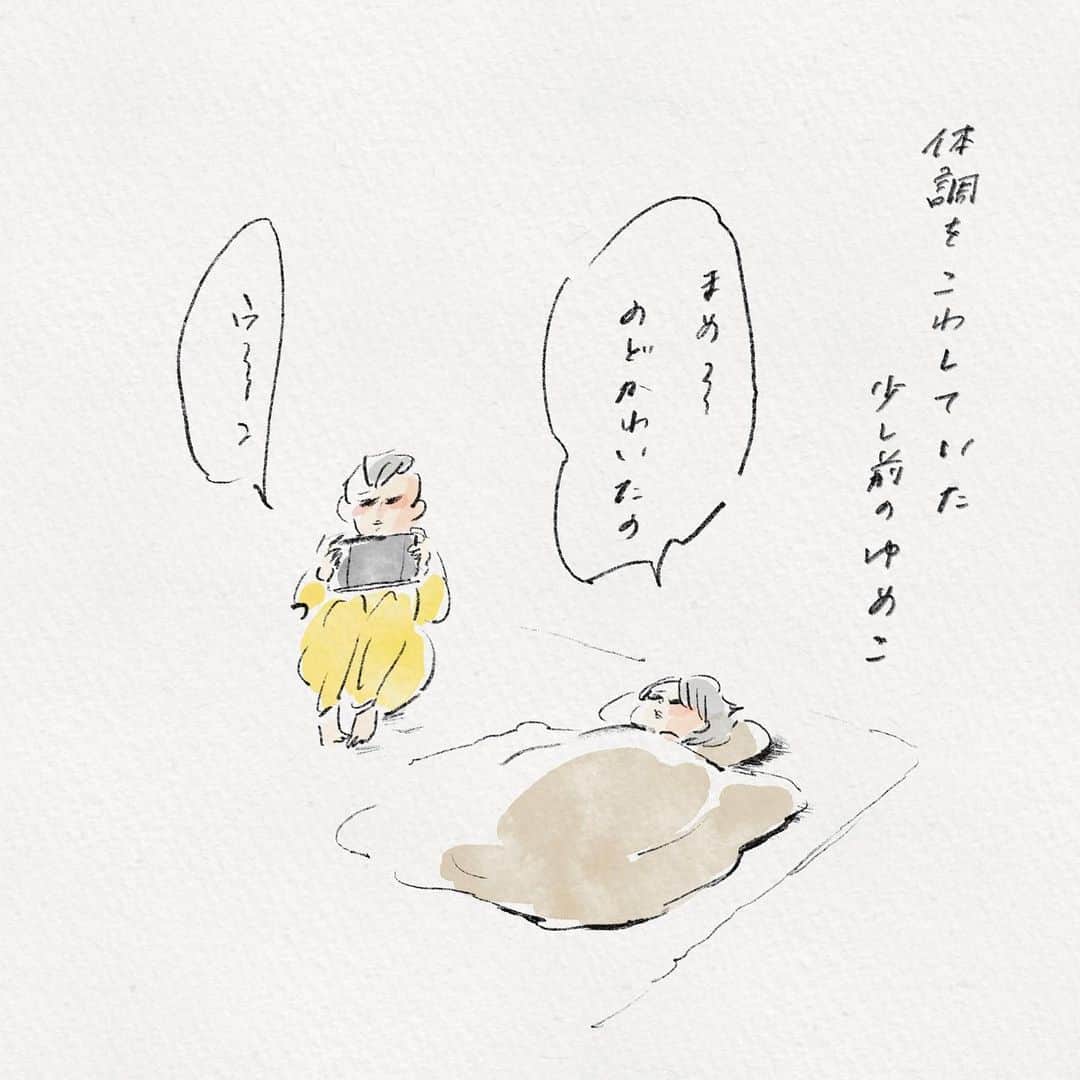 体調をこわしていた
少し前のゆめこ
まめ〜〜
のどかわいたの
ウ〜〜ン